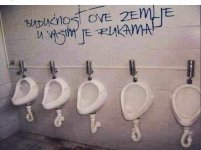 BUDUĆNOST OVE ZEMLJE
U VAŠIM JE RUKAMA!